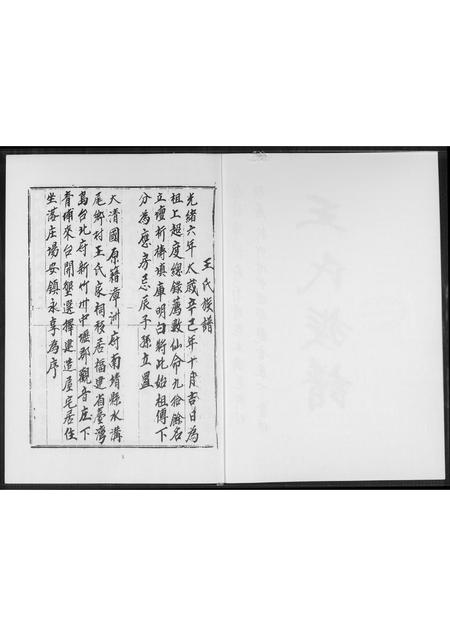 王氏族譜
光緒六年太歲辛巳年十月吉日為
祖上超度總錄薦數仙命九份餘名
立壇祈禱填庫明白將此始祖傳下
分為應房忌辰子孫立置
大清國原籍漳洲府南靖縣水溝
尾鄉村王氏家祠移居福建省臺灣
島台北府新竹卅中壢郡觀音庄下
青埔來台開墾選擇建造屋宅居住
坐落庄場安鎮永享為序
王氏族譜